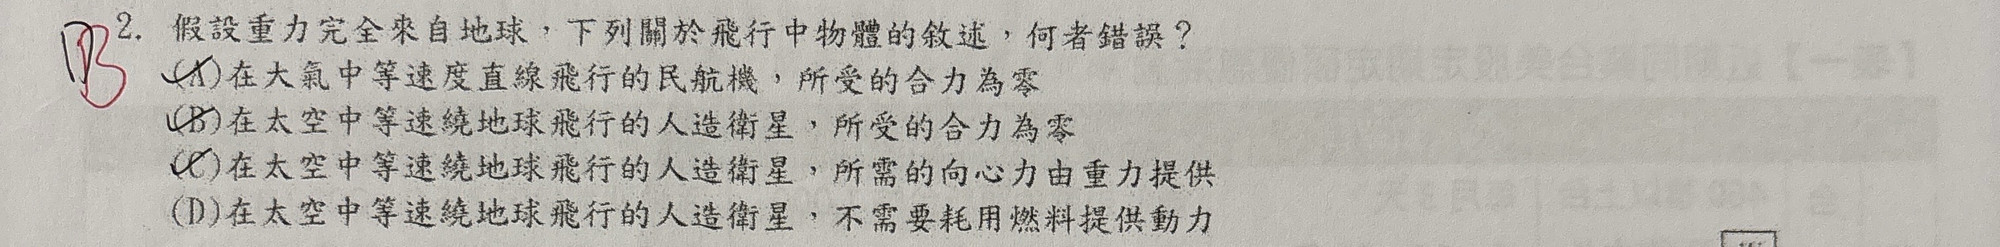 B 2. 假設重力完全來自地球，下列關於飛行中物體的敘述，何者錯誤？
(A)在大氣中等速度直線飛行的民航機，所受的合力為零
(B)在太空中等速繞地球飛行的人造衛星，所受的合力為零
(C)在太空中等速繞地球飛行的人造衛星，所需的向心力由重力提供
(D)在太空中等速繞地球飛行的人造衛星，不需要耗用燃料提供動力